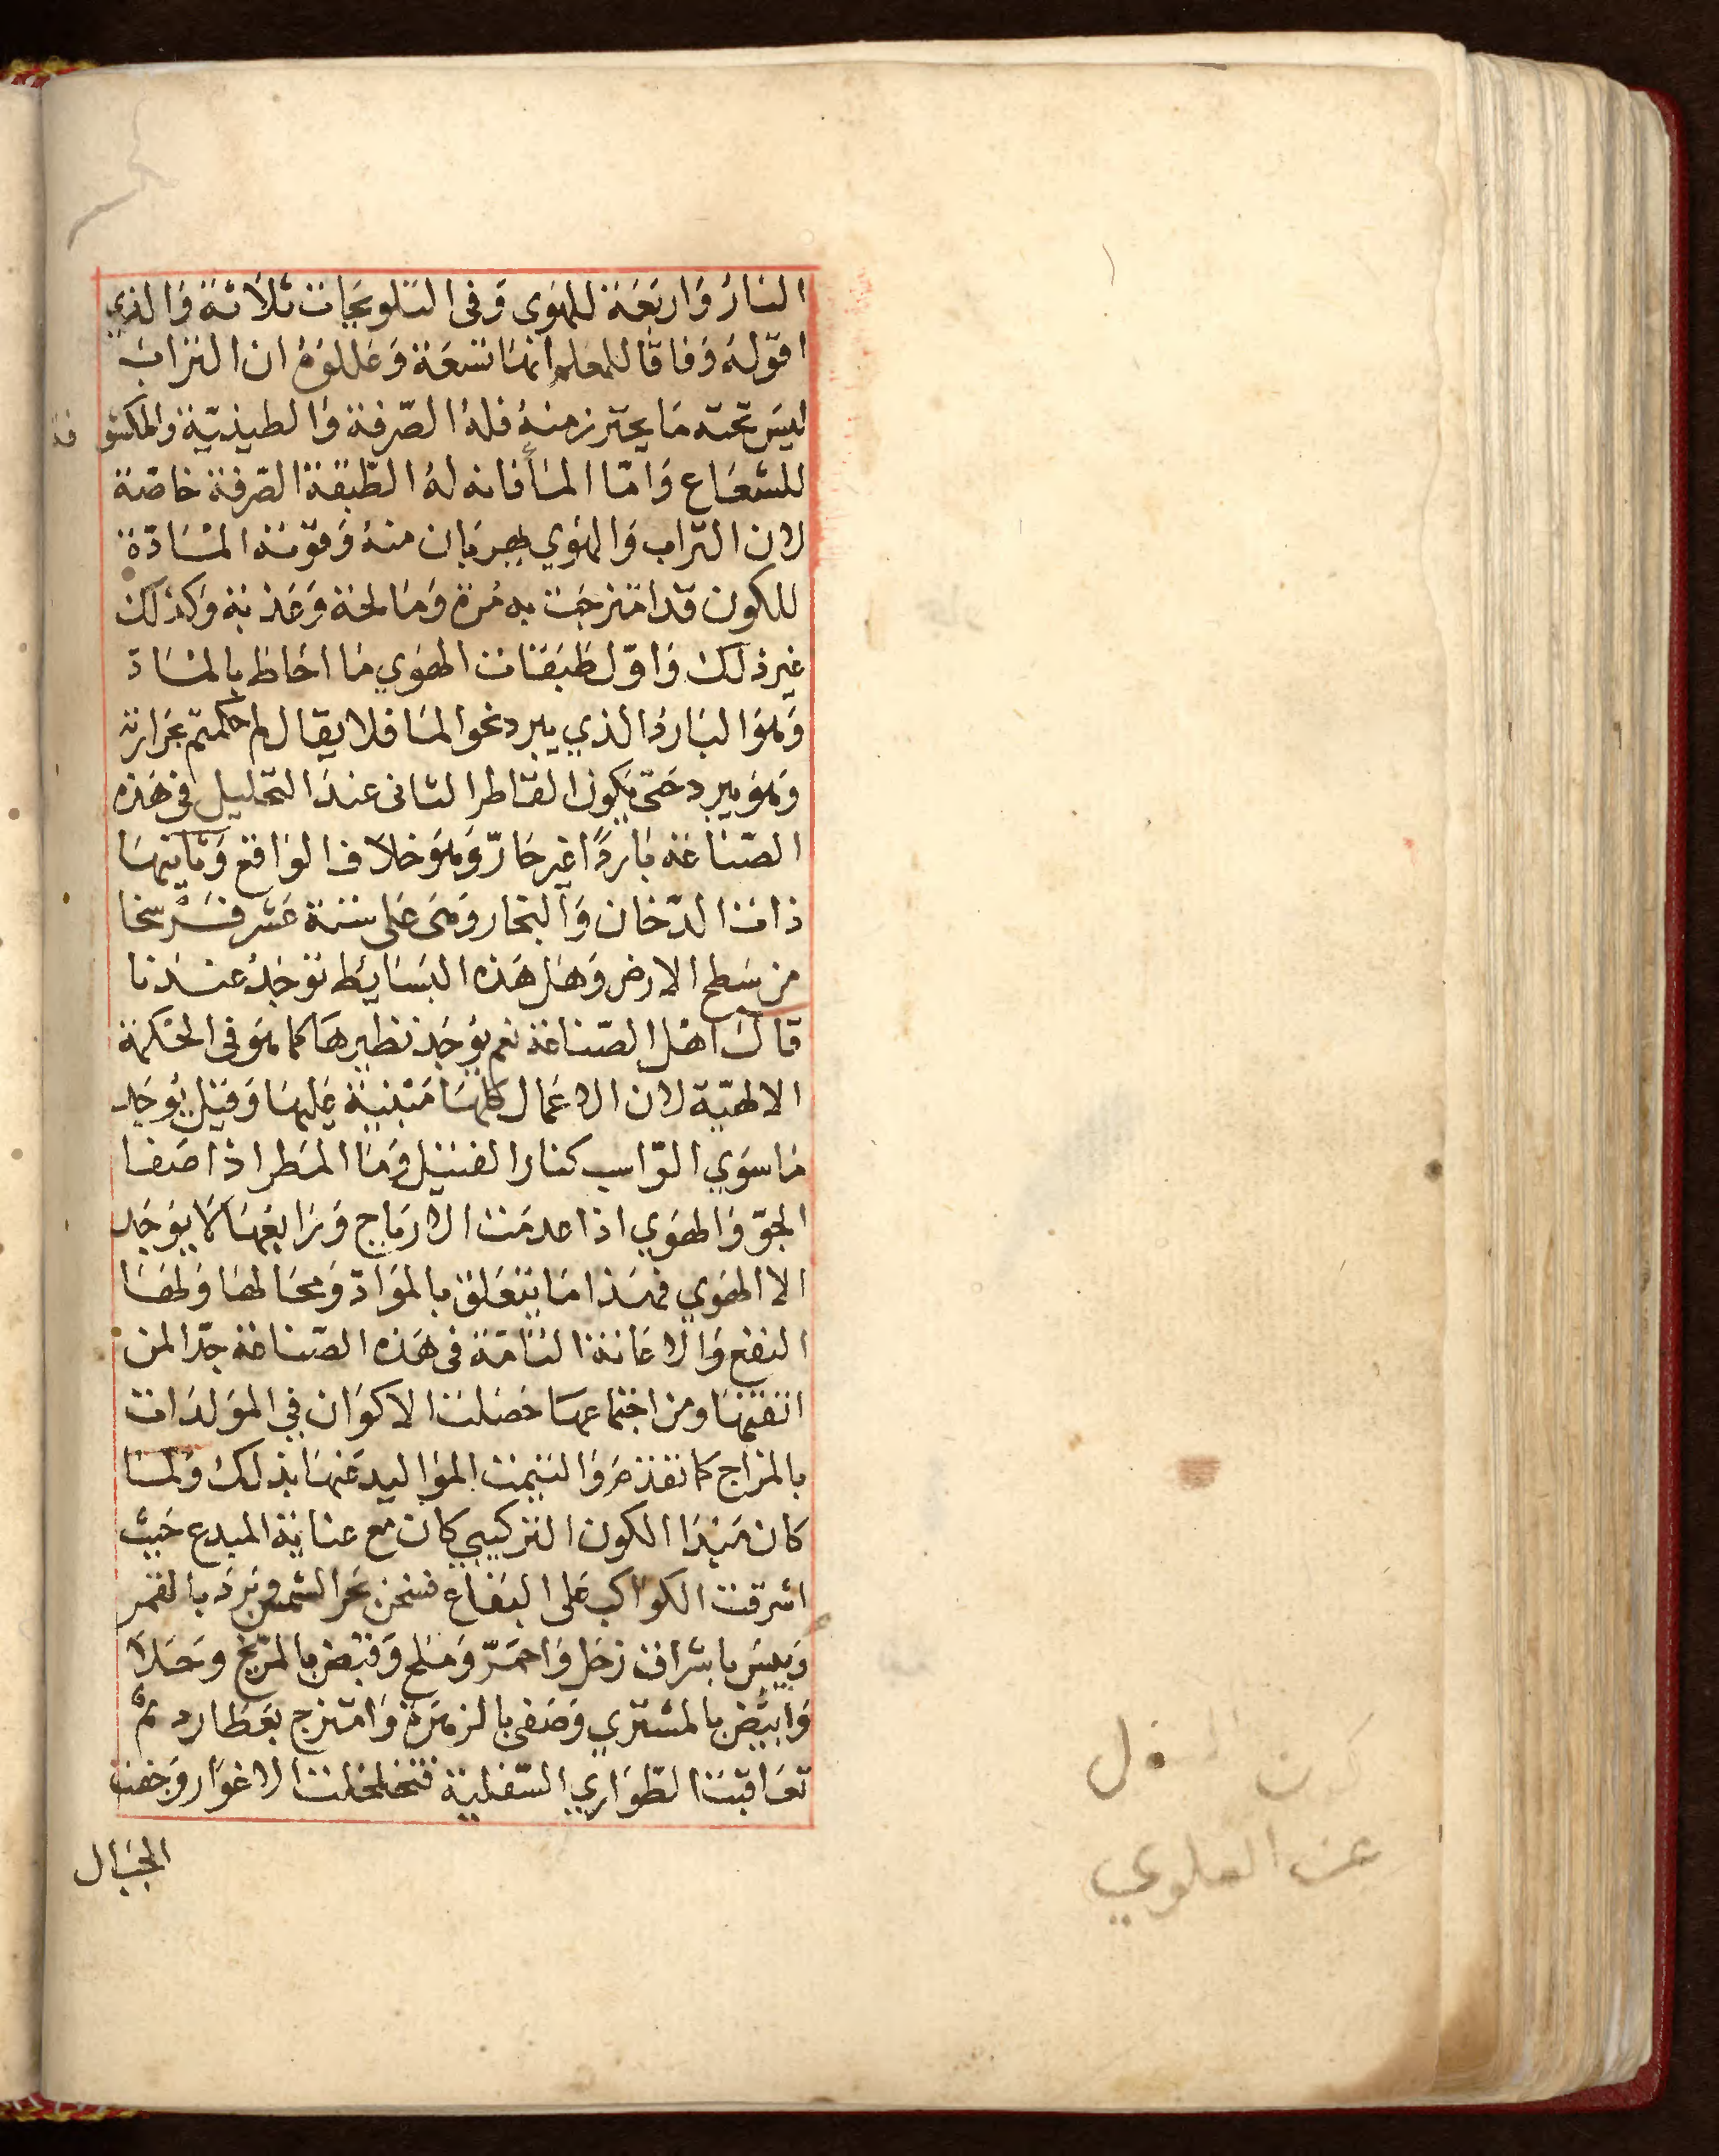 النار واربعة للهوى وفى التلويحات ثلاثة والذي
اقوله وفاقا للمعلم انها تسعة وعللوه ان التراب
ليس تحته ما يحترز منه فله الصرفة والطينية والمكشوفة
للشعاع واما الماء فانه له الطبقة الصرفة خاصة
لان التراب والهوي طهران منه وقوته المسادة
للكون قد امتزجت به مرة ومالحة وعذبة وكذلك
غير ذلك واول طبقات الهوي ما احاط بالماد
وهو البارد الذي يبرد نحو الما فلا يقال لم حكمتم بحرارته
وهو يبرد حتى يكون القاطر الثانى عند التحليل فى هذه
الصناعة باردًا غير حارّ وهو خلاف الواقع وثانيها
ذات الدخان والبخار وهى على ستة عشر فرسخا
من سطح الارض وهل هذه البسايط توجد عندنا
قال اهل الصناعة نعم يوجد نظيرها كما هو فى الحكمة
الالهية لان الاعمال كلها مبنية عليها وقيل يوجد
ما سوي التراب كنار الفتيل وما المطر اذا صفا
الجوّ والهوي اذا عدمت الارياح ورابعها لا يوجد
الا الهوي فهذا ما يتعلق بالموادّ ومحالها ولها
النفع والاعانة التامة فى هذه الصناعة جدّا لمن
اتقنها ومن اجتماعها حصلت الاكوان في المولدات
بالمزاج كما تقدم والتيمت المواليد عنها بذلك ولما
كان مبدا الكون التركيبي كان مع عناية المبدع حيث
اشرقت الكواكب على البقاع فسخن بحر الشمس وبرد بالقمر
ويبس باشراف زحل واحمرّ وملح وقبض بالمريخ وحلا
وابيض بالمشتري وصفى بالزهرة وامتزج بعطارد ثم
تعاقبت الطواري السفلية فتخلخلت الاغوار وجفت
الجبال
عن العلوي